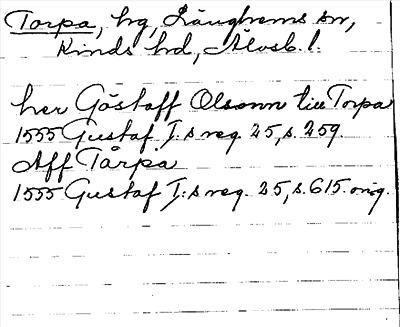 Torpa, hg, Länghems sn,
Kinds hd, Älvsb. l.
her Göstaff Olsonn till Torpa
1555 Gustaf I:s reg. 25, s. 259.
Aff Tårpa
1555 Gustaf I:s reg. 25, s. 615. orig.